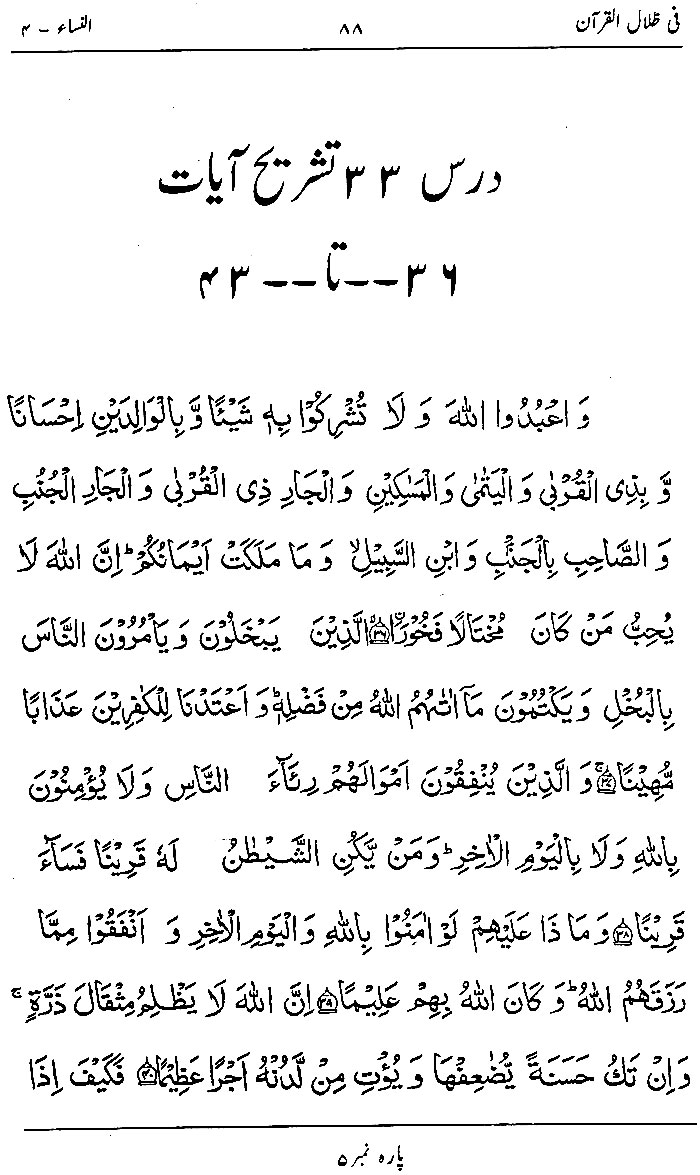 فی ظلال القرآن ۸۸ النساء - ۴
درس ۳۳ تشریح آیات
۳۶ --تا-- ۴۳
وَ اعْبُدُوا اللّٰهَ وَ لَا تُشْرِكُوْا بِهٖ شَیْـًٔا وَّ بِالْوَالِدَیْنِ اِحْسَانًا
وَّ بِذِی الْقُرْبٰی وَ الْیَتٰمٰی وَ الْمَسٰكِیْنِ وَ الْجَارِ ذِی الْقُرْبٰی وَ الْجَارِ الْجُنُبِ
وَ الصَّاحِبِ بِالْجَنْۢبِ وَ ابْنِ السَّبِیْلِ ۙ وَ مَا مَلَكَتْ اَیْمَانُكُمْ ؕ اِنَّ اللّٰهَ لَا
یُحِبُّ مَنْ كَانَ مُخْتَالًا فَخُوْرَا ۙ﴿۳۶﴾ الَّذِیْنَ یَبْخَلُوْنَ وَ یَاْمُرُوْنَ النَّاسَ
بِالْبُخْلِ وَ یَكْتُمُوْنَ مَاۤ اٰتٰىهُمُ اللّٰهُ مِنْ فَضْلِهٖ ؕ وَ اَعْتَدْنَا لِلْكٰفِرِیْنَ عَذَابًا
مُّهِیْنًا ۚ﴿۳۷﴾ وَ الَّذِیْنَ یُنْفِقُوْنَ اَمْوَالَهُمْ رِئَآءَ النَّاسِ وَ لَا یُؤْمِنُوْنَ
بِاللّٰهِ وَ لَا بِالْیَوْمِ الْاٰخِرِ ؕ وَ مَنْ یَّكُنِ الشَّیْطٰنُ لَهٗ قَرِیْنًا فَسَآءَ
قَرِیْنًا ﴿۳۸﴾ وَ مَا ذَا عَلَیْهِمْ لَوْ اٰمَنُوْا بِاللّٰهِ وَ الْیَوْمِ الْاٰخِرِ وَ اَنْفَقُوْا مِمَّا
رَزَقَهُمُ اللّٰهُ ؕ وَ كَانَ اللّٰهُ بِهِمْ عَلِیْمًا ﴿۳۹﴾ اِنَّ اللّٰهَ لَا یَظْلِمُ مِثْقَالَ ذَرَّةٍ ۚ
وَ اِنْ تَكُ حَسَنَةً یُّضٰعِفْهَا وَ یُؤْتِ مِنْ لَّدُنْهُ اَجْرًا عَظِیْمًا ﴿۴۰﴾ فَكَیْفَ اِذَا
پارہ نمبر ۵